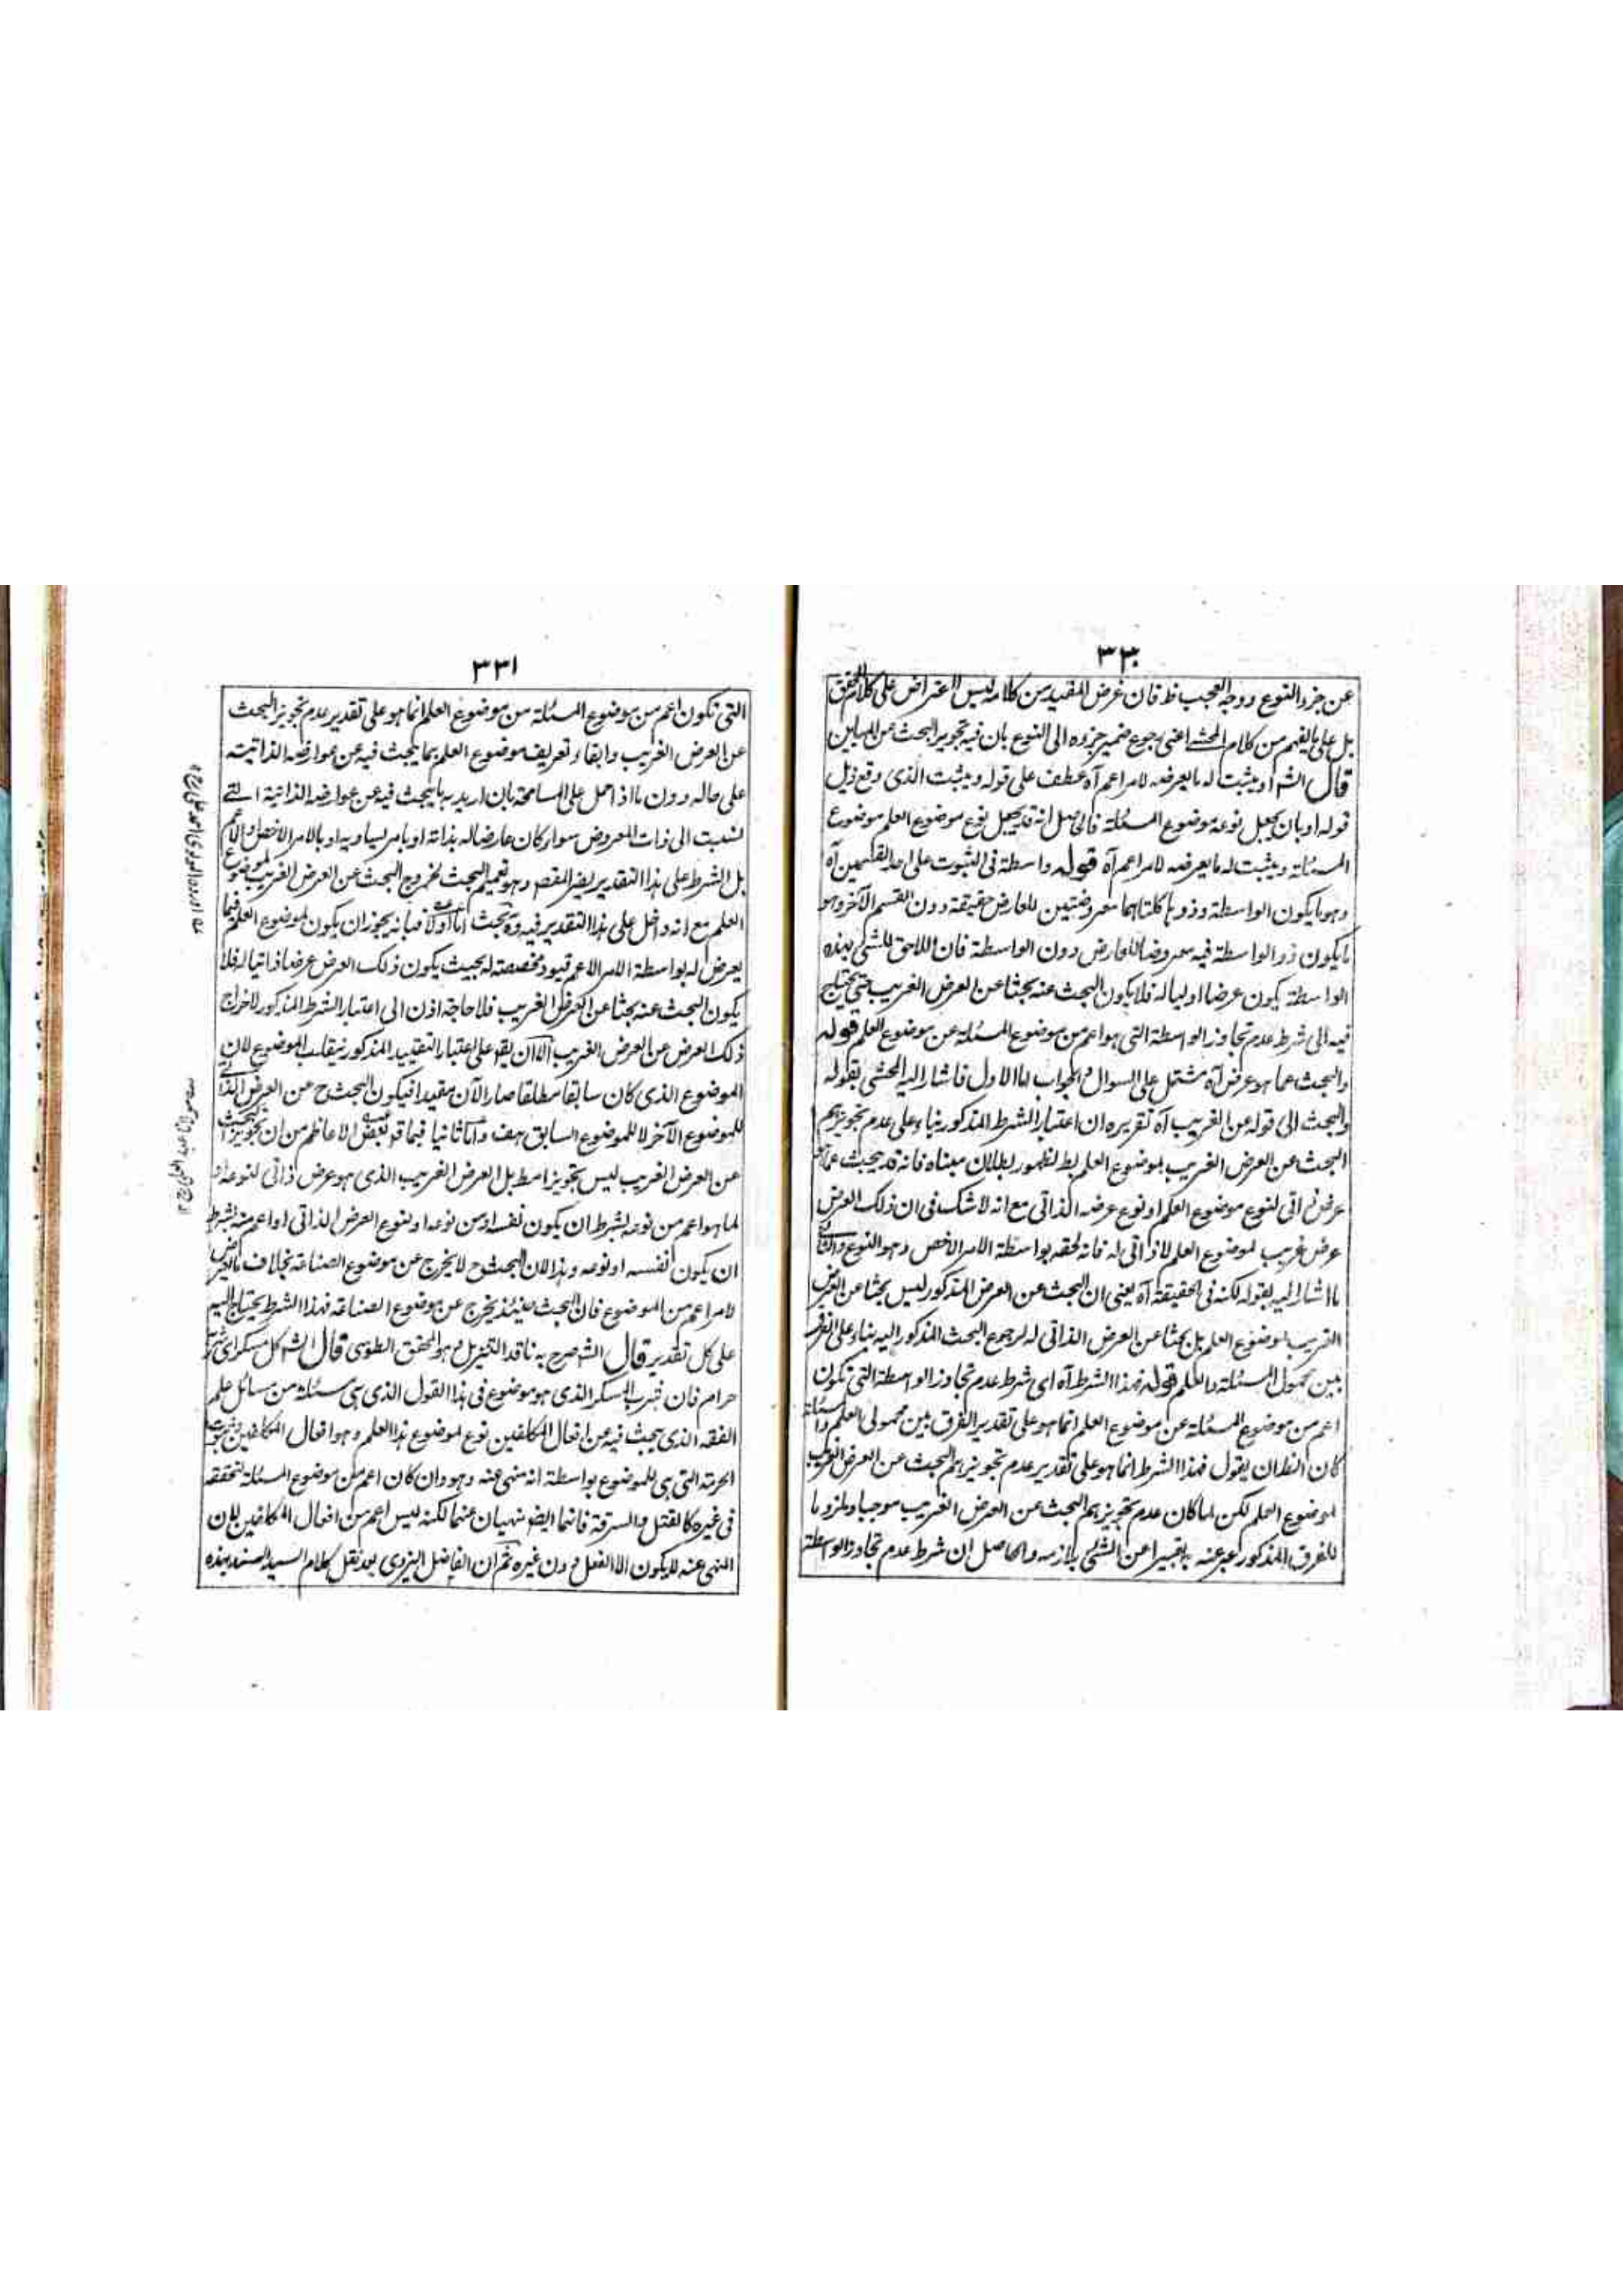 ٣٣٠
عن جزء النوع ووجه العجب ظ فان غرض المفيد من كلامه ليس الاعتراض على كلام المحقق
بل على ما يفهم من كلام المحشے اعنى رجوع ضمير جزوه الى النوع بان فيه تجويز البحث عن المباين
قال الشر او يثبت له ما يعرضه لامر اعم آه عطف على قوله ويثبت الذى وقع ذيل
قوله او بان يجعل نوعه موضوع المسئلة فالحاصل انه قد يجعل نوع موضوع العلم موضوع
المسئلة ويثبت له ما يعرضه لامر اعم آه قوله واسطة فى الثبوت على احد القسمين آه
وهو ما يكون الواسطة وذوبا كلتاهما معروضتين للعارض حقيقة دون القسم الآخر وهو
ما يكون ذو الواسطة فيه معروضا للعارض دون الواسطة فان اللاحق للشئ بهذه
الواسطة يكون عرضا اوليا له فلا يكون البحث عنه بحثا عن العرض الغريب حتى يحتاج
فيه الى شرط عدم تجاوز الواسطة التى هو اعم من موضوع المسئلة عن موضوع العلم قوله
والبحث عما هو عرض آه مشتمل على السوال والجواب اما الاول فاشار اليه المحشى بقوله
والبحث الى قوله عن الغريب آه تقريره ان اعتبار الشرط المذكور بناء على عدم تجويزهم
البحث عن العرض الغريب لموضوع العلم بط لظهور بطلان مبناه فانه قد يبحث عما هو
عرض ذاتى لنوع موضوع العلم او نوع عرضه الذاتى مع انه لا شك فى ان ذلك العرض
عرض غريب لموضوع العلم لا ذاتى له فانه لحقه بواسطة الامر الاخص وهو النوع واما الثانى
ما اشار اليه بقوله لكنه فى الحقيقة آه يعنى ان البحث عن العرض المذكور ليس بحثا عن العرض
الغريب لموضوع العلم بل بحثا عن العرض الذاتى له لرجوع البحث المذكور اليه بناء على الفرق
بين محمول المسئلة والعلم قوله فهذا الشرط آه اى شرط عدم تجاوز الواسطة التى تكون
اعم من موضوع المسئلة عن موضوع العلم انما هو على تقدير الفرق بين محمولى العلم والمسئلة
كان الظ ان يقول فهذا الشرط انما هو على تقدير عدم تجويزهم البحث عن العرض الغريب
لموضوع العلم لكن لما كان عدم تجويزهم البحث عن العرض الغريب موجبا وملزوما
للفرق المذكور عبر عنه به تعبيرا عن الشئ بلازمه والحاصل ان شرط عدم تجاوز الواسطة
٣٣١
التى تكون اعم من موضوع المسئلة من موضوع العلم انما هو على تقدير عدم تجويز البحث
عن العرض الغريب وابقاء تعريف موضوع العلم بما يبحث فيه عن عوارضه الذاتية
على حاله دون ما اذا حمل على المسامحة بان اريد به ما يبحث فيه عن عوارضه الذاتية التے
نسبت الى ذات المعروض سواء كان عارضا له بذاته او بامر يساويه او بالامر الاخص والاعم
بل الشرط على هذا التقدير يضر المقص وهو تعميم البحث لخروج البحث عن العرض الغريب لموضوع
العلم مع انه داخل على هذا التقدير فيه وفيه بحث اما اولا فبانه يجوز ان يكون لموضوع العلم فيما
يعرض له بواسطة الامر الاعم قيود مخصصة له بحيث يكون ذلك العرض عرضا ذاتيا له فلا
يكون البحث عنه بحثا عن العرض الغريب فلا حاجة اذن الى اعتبار الشرط المذكور لاخراج
ذلك العرض عن العرض الغريب الا ان يقو على اعتبار التقييد المذكور ينقلب الموضوع لان
الموضوع الذى كان سابقا مطلقا صار الآن مقيدا فيكون البحث ح عن العرض الذاتى
للموضوع الآخر لا للموضوع السابق هف واما ثانيا فبما قو بعض الاعاظم من ان تجويز البحث
عن العرض الغريب ليس تجويزا مط بل العرض الغريب الذى هو عرض ذاتى لنوعه او
لما هو اعم من نوعه بشرط ان يكون نفسه او من نوعه او لنوع العرض الذاتى او اعم منه بشرط
ان يكون نفسه او نوعه وهذا لان البحث ح لا يخرج عن موضوع الصناعة بخلاف ما اذا عرض
لامر اعم من الموضوع فان البحث حينئذ يخرج عن موضوع الصناعة فهذا الشرط يحتاج اليه
على كل تقدير قال الشر صرح به ناقد التنزيل وهو المحقق الطوسى قال الشر كل مسكر اى شربه
حرام فان شرب المسكر الذى هو موضوع فى هذا القول الذى هى مسئلة من مسائل علم
الفقه الذى يبحث فيه عن افعال المكلفين نوع لموضوع هذا العلم وهو افعال المكلفين
الحرمة التى هى للموضوع بواسطة انه منهى عنه وهو وان كان اعم من موضوع المسئلة لتحققه
فى غيره كالقتل والسرقة فانهما ايضو منهيان عنهما لكنه ليس اعم من افعال المكلفين لان
المنهى عنه لا يكون الا الفعل دون غيره ثم ان الفاضل اليزدى بعد نقل كلام السيد السند بهذه